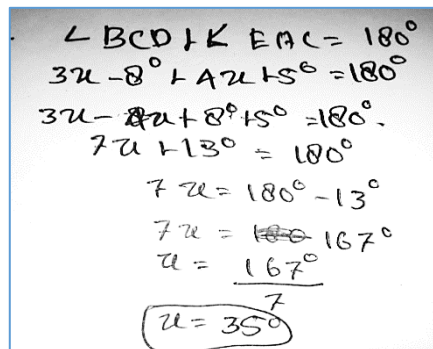 ∠ BCD + ∠ EAC = 180°
3x - 8° + 4x + 5° = 180°
3x - 4x + 8° + 5° = 180°.
7x + 13° = 180°
7x = 180° - 13°
7x = 167°
x = 167°/7
x = 35°